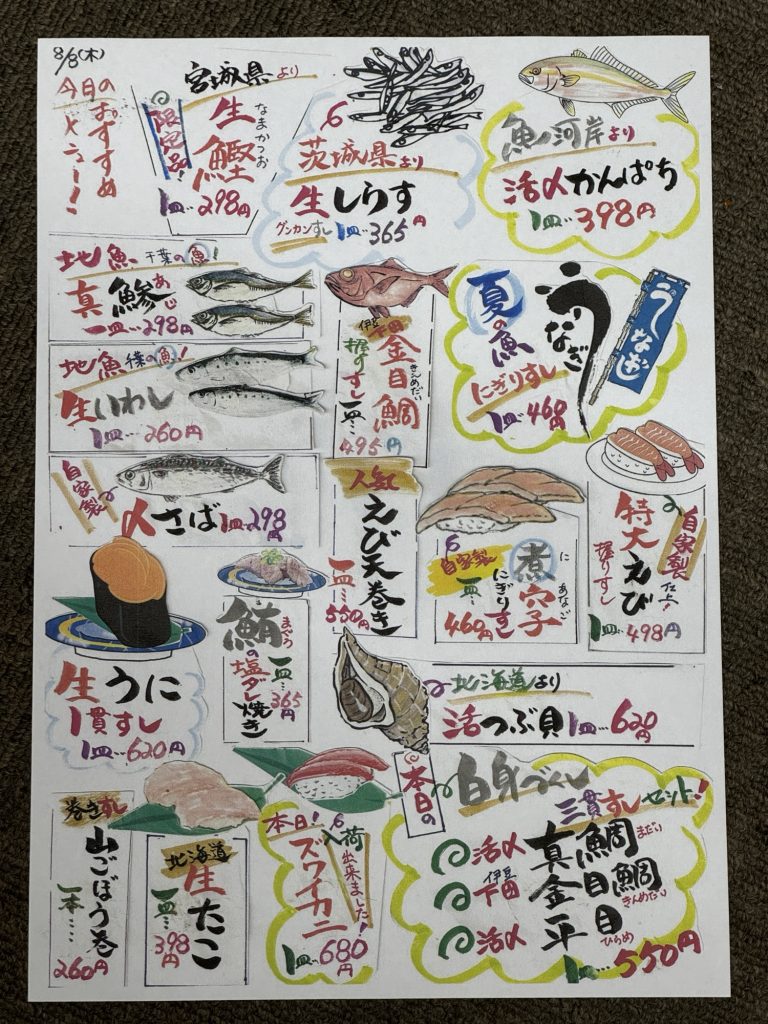 8/8(木)
今日の
おすすめ
メニュー!
宮城県より
限定品!
生鰹
なまかつお
1皿‥298円
茨城県より
生しらす
グンカンすし 1皿‥365円
魚河岸より
活〆かんぱち
1皿‥398円
地魚 千葉の魚!
真鯵
あじ
一皿‥298円
地魚 千葉の魚!
生いわし
1皿‥260円
自家製
〆さば 1皿‥298円
伊豆
下田
金目鯛
きんめだい
握りすし
一皿‥
495円
夏の魚
うなぎ
にぎりすし
1皿‥460円
うなぎ
人気
えび天巻き
一皿‥
550円
自家製
煮穴子
に あなご
にぎりすし
一皿‥
460円
自家製
仕上!
特大えび
握りすし
1皿‥498円
生うに
1貫すし
1皿‥620円
鮪の塩ダレ焼き
まぐろ
一皿‥
365円
北海道より
活つぶ貝 1皿‥620円
巻きすし
山ごぼう巻
一本‥‥
260円
北海道
生たこ
一皿‥
398円
本日!
入荷出来ました!
ズワイカニ
1皿‥680円
本日の
白身づくし
三貫すしセット!
活〆 真鯛
まだい
伊豆
下田 金目鯛
きんめだい
活〆 平目
ひらめ
1皿‥‥550円